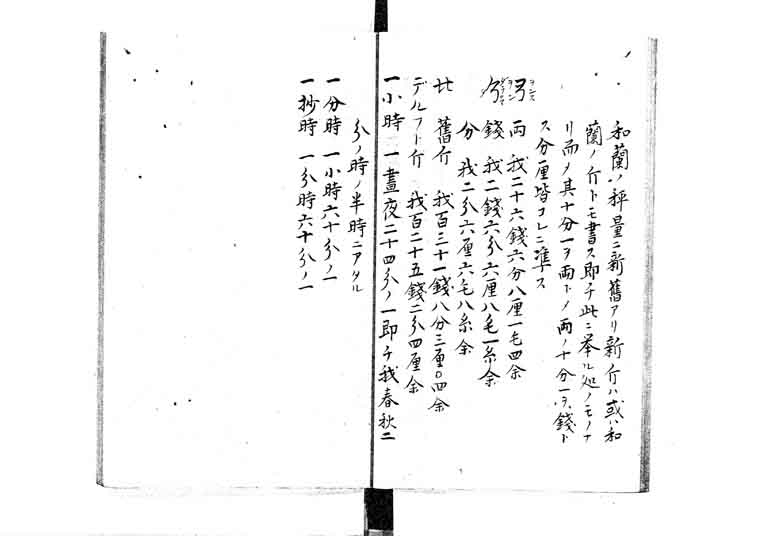 和蘭ノ秤量ニ新舊アリ新斤ハ或ハ和
蘭ノ斤トモ書ス即チ此ニ挙ル処ノモノナ
リ而〆其十分一ヲ両ト〆両ノ十分一ヲ錢ト
ス分厘皆コレニ準ス
両 我二十六錢六分八厘一毛四余
錢 我二錢六分六厘八毛一糸余
分 我二分六厘六毛八糸余
舊斤 我百三十一錢八分三厘〇四余
デルフト斤 我百二十五錢二分四厘余
一小時 一晝夜二十四分ノ一即チ我春秋二
分ノ時ノ半時ニアタル
一分時 一小時六十分ノ一
一抄時 一分時六十分ノ一